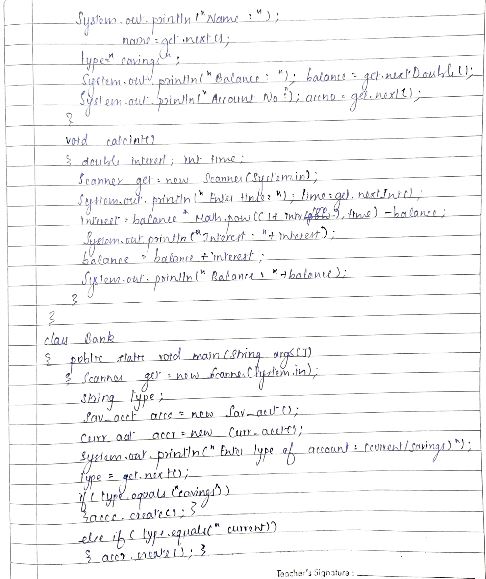 System.out.println("Name :");
name = get.next();
type = "savings";
System.out.println("Balance : "); balance = get.nextDouble();
System.out.println("Account No :"); accno = get.next();
}
void calcint()
{ double interest; int time;
Scanner get = new Scanner(System.in);
System.out.println("Enter time : "); time = get.nextInt();
interest = balance * Math.pow((1+ int/100), time) - balance;
System.out.println("Interest : "+interest);
balance = balance + interest;
System.out.println("Balance : "+balance);
}
}
class Bank
{ public static void main(String args[])
{ Scanner get = new Scanner(System.in);
String type;
Sav_acct accs = new Sav_acct();
Curr_acct accr = new Curr_acct();
System.out.println("Enter type of account : (current/savings)");
type = get.next();
if( type.equals("savings"))
{ accs.create(); }
else if( type.equals("current"))
{ accr.create(); }
Teacher's Signature :